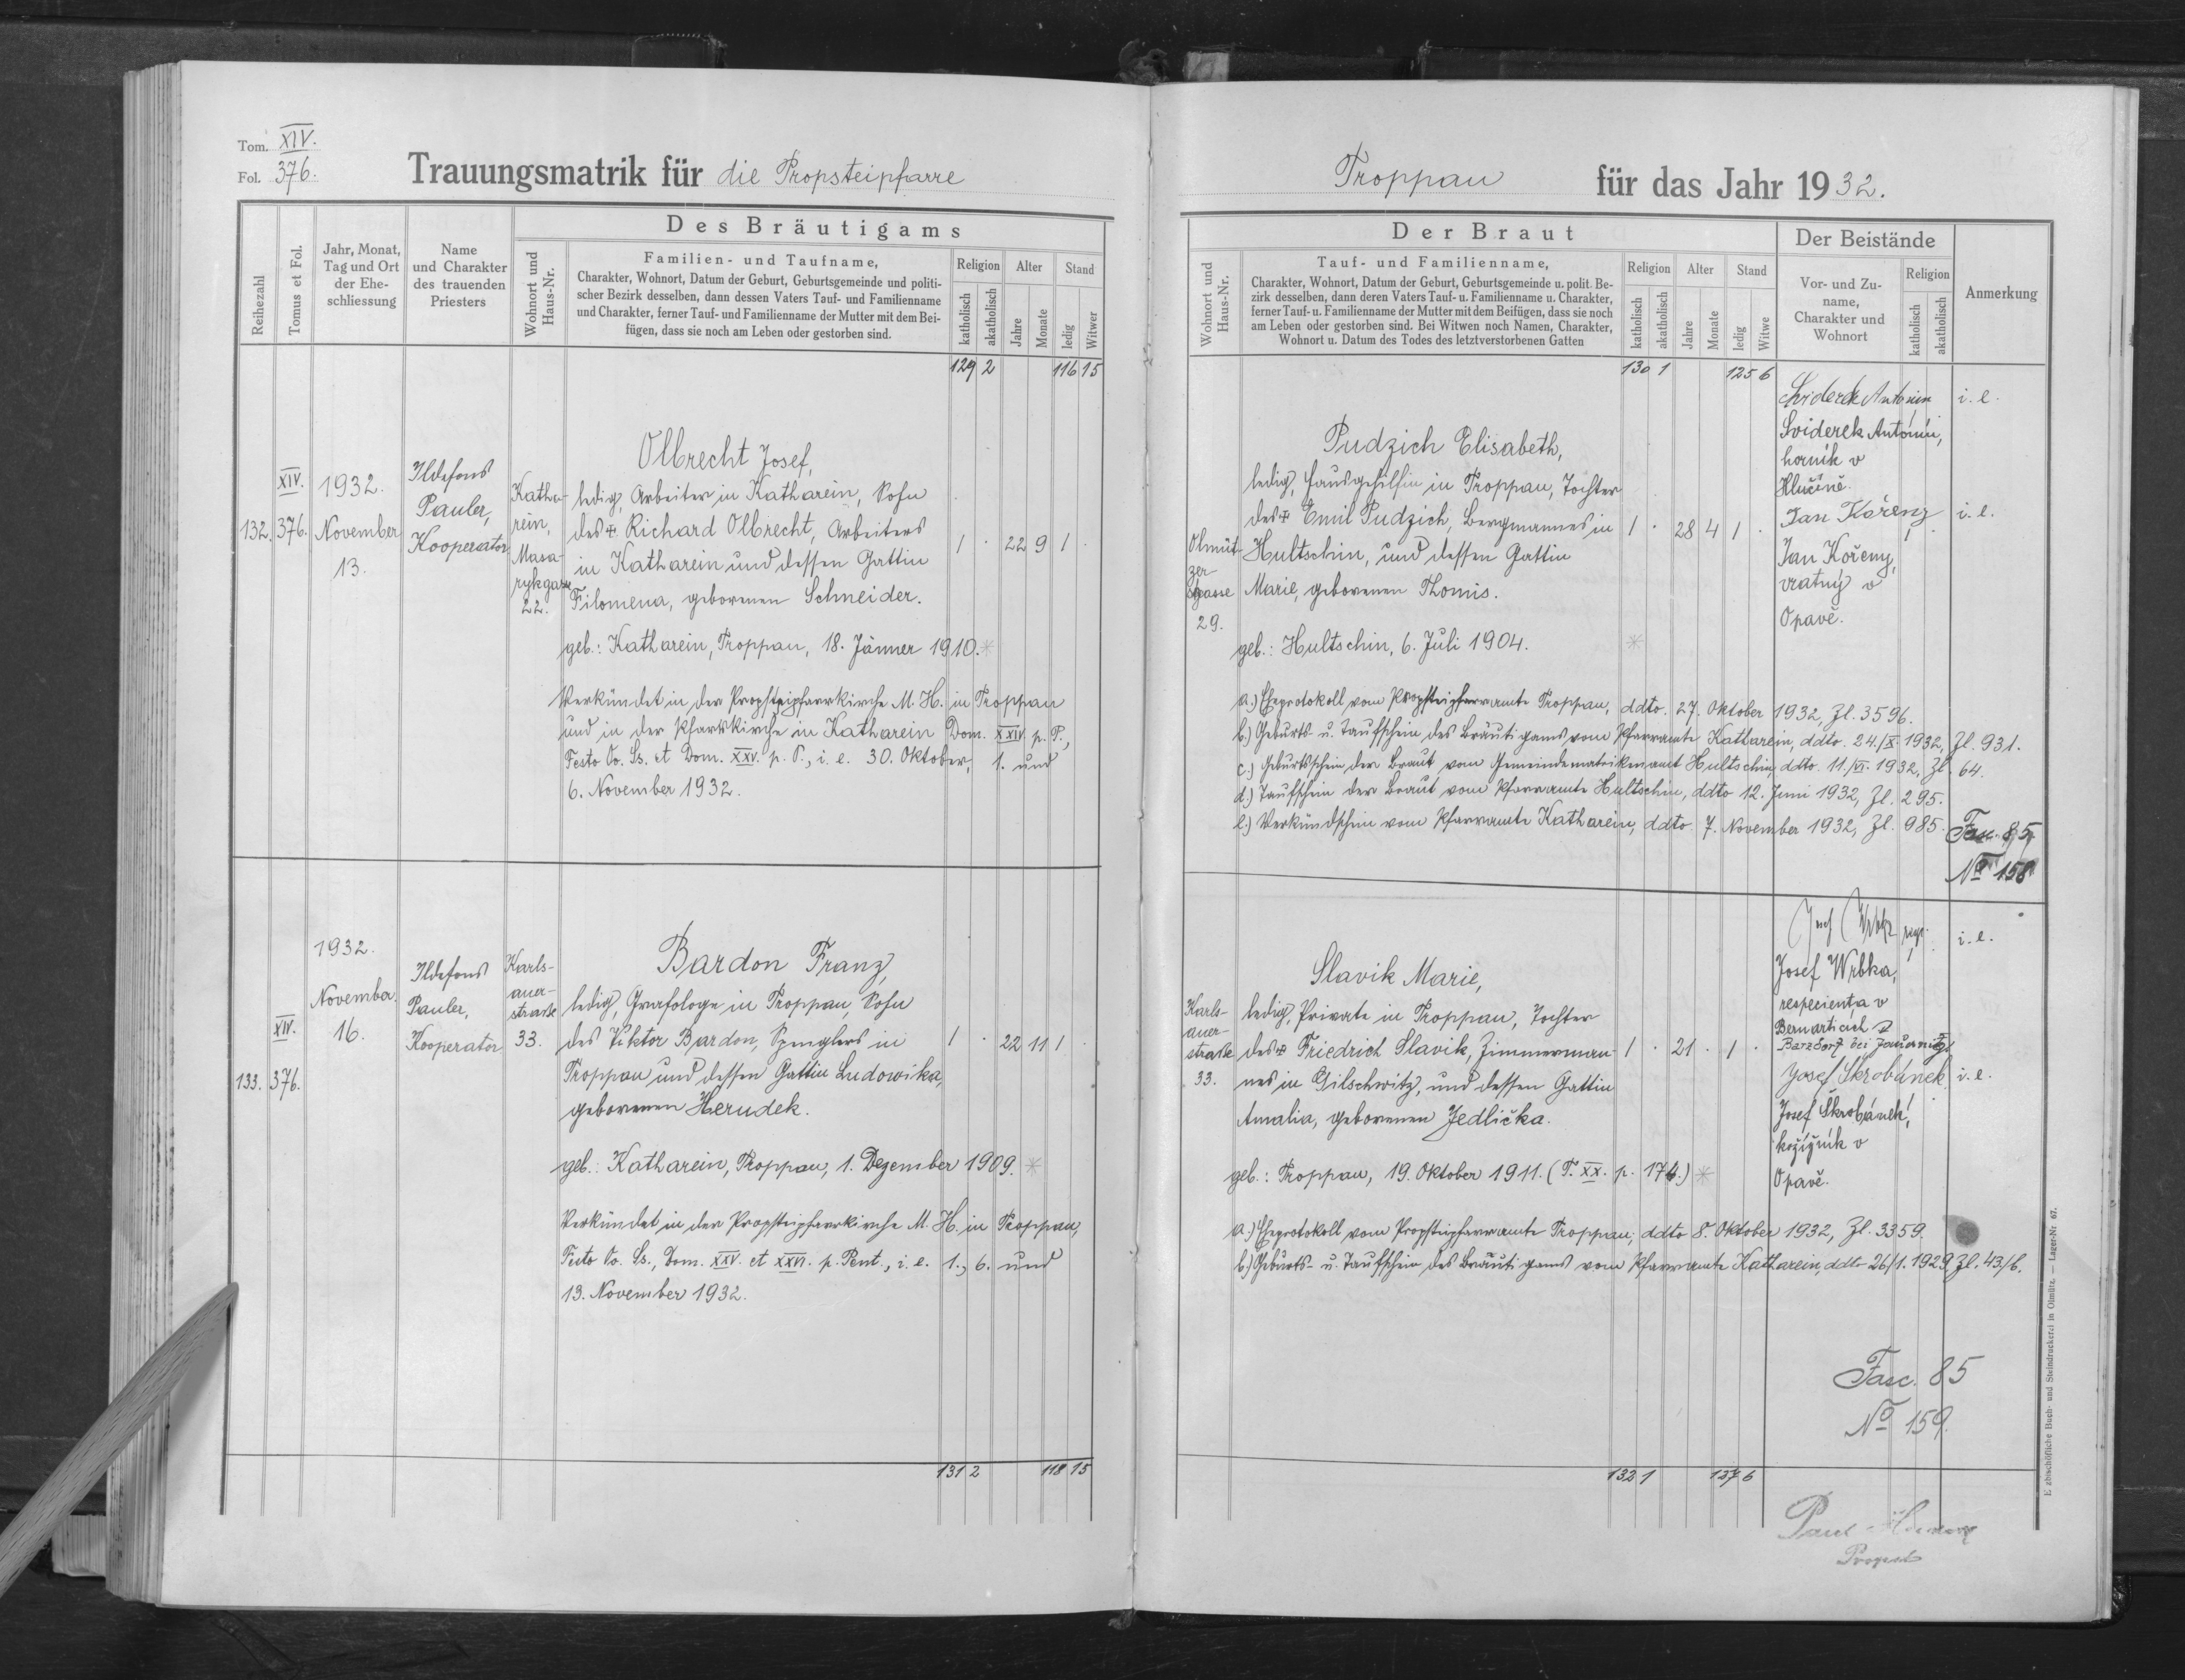 Tom. XIV.
Fol. 376.
Trauungsmatrik für die Propsteipfarre
Reihezahl
Tomus et Fol.
Jahr, Monat,
Tag und Ort
der Ehe-
schliessung
Name
und Charakter
des trauenden
Priesters
Des Bräutigams
Wohnort und
Haus-Nr.
Familien- und Taufname,
Charakter, Wohnort, Datum der Geburt, Geburtsgemeinde und politi-
scher Bezirk desselben, dann dessen Vaters Tauf- und Familienname
und Charakter, ferner Tauf- und Familienname der Mutter mit dem Bei-
fügen, dass sie noch am Leben oder gestorben sind.
Religion
katholisch
akatholisch
Alter
Jahre
Monate
Stand
ledig
Witwer
129 2 116 15
132.
XIV.
376.
1932.
November
13.
Ildefons
Pauler,
Kooperator
Katha-
rein,
Masa-
rykgasse
22.
Olbrecht Josef,
ledig, Arbeiter in Katharein, Sohn
des + Richard Olbrecht, Arbeiters
in Katharein und dessen Gattin
Filomena, geborenen Schneider.
1 . 22 9 1 .
geb.: Katharein, Troppau, 18. Jänner 1910.*
Verkündet in der Propsteipfarrkirche M. H. in Troppau
und in der Pfarrkirche in Katharein Dom. XXIV. p. P.,
Festo Oo. Ss. et Dom. XXV. p. P., i. e. 30. Oktober, 1. und
6. November 1932.
133.
XIV.
376.
1932.
November.
16.
Ildefons
Pauler,
Kooperator
Karls-
auer-
straße
33.
Bardon Franz,
ledig, Grafologe in Troppau, Sohn
des Viktor Bardon, Spenglers in
Troppau und dessen Gattin Ludowika,
geborenen Herudek.
1 . 22 11 1 .
geb.: Katharein, Troppau, 1. Dezember 1909. *
Verkündet in der Propsteipfarrkirche M. H. in Troppau,
Festo Oo. Ss., Dom. XXV. et XXVI. p. Pent., i. e. 1., 6. und
13. November 1932.
131 2 118 15
Troppau für das Jahr 1932.
Der Braut
Wohnort und
Haus-Nr.
Tauf- und Familienname,
Charakter, Wohnort, Datum der Geburt, Geburtsgemeinde u. polit. Be-
zirk desselben, dann deren Vaters Tauf- u. Familienname u. Charakter,
ferner Tauf- u. Familienname der Mutter mit dem Beifügen, dass sie noch
am Leben oder gestorben sind. Bei Witwen noch Namen, Charakter,
Wohnort u. Datum des Todes des letztverstorbenen Gatten
Religion
katholisch
akatholisch
Alter
Jahre
Monate
Stand
ledig
Witwe
Der Beistände
Vor- und Zu-
name,
Charakter und
Wohnort
Religion
katholisch
akatholisch
Anmerkung
130 1 125 6
Olmüt-
zer-
gasse
29.
Pudzich Elisabeth,
ledig, Hausgehilfin in Troppau, Tochter
des + Emil Pudzich, Bergmannes in
Hultschin, und dessen Gattin
Marie, geborenen Thomis.
1 . 28 4 1 .
geb.: Hultschin, 6. Juli 1904. *
Sviderek Antonin i. e.
Sviderek Antonín,
horník v
Hlučíně.
Jan Kořeny i. e.
Jan Kořeny,
vratný v
Opavě.
a.) Eheprotokoll vom Propsteipfarramte Troppau, ddto. 27. Oktober 1932, Zl. 3596.
b.) Geburts- u. Taufschein des Bräutigams vom Pfarramte Katharein, ddto. 24./X. 1932, Zl. 931.
c.) Geburtsschein der Braut vom Gemeindematrikenamt Hultschin, ddto. 11./VI. 1932, Zl. 64.
d.) Taufschein der Braut vom Pfarramte Hultschin, ddto 12. Juni 1932, Zl. 295.
e.) Verkündschein vom Pfarramte Katharein, ddto 7. November 1932, Zl. 985.
Fasc. 85
No 158
Karls-
auer-
straße
33.
Slavik Marie,
ledig, Private in Troppau, Tochter
des + Friedrich Slavik, Zimmerman-
nes in Gilschwitz, und dessen Gattin
Amalia, geborenen Jedlička.
1 . 21 . 1 .
geb.: Troppau, 19. Oktober 1911. (T. XX. p. 174.) *
i. e.
Josef Wrbka,
respicienta v
Bernarticích
Barzdorf bei Jauernig
Josef Skrobánek i. e.
Josef Skrobánek,
kožišník v
Opavě.
a.) Eheprotokoll vom Propsteipfarramte Troppau, ddto 8. Oktober 1932, Zl. 3359.
b.) Geburts- u. Taufschein des Bräutigams vom Pfarramte Katharein, ddto 26/1. 1929, Zl. 43/6.
Fasc. 85
No 159.
132 1 127 6
Paul
Propst
Erzbischöfliche Buch- und Steindruckerei in Olmütz. — Lager-Nr. 67.